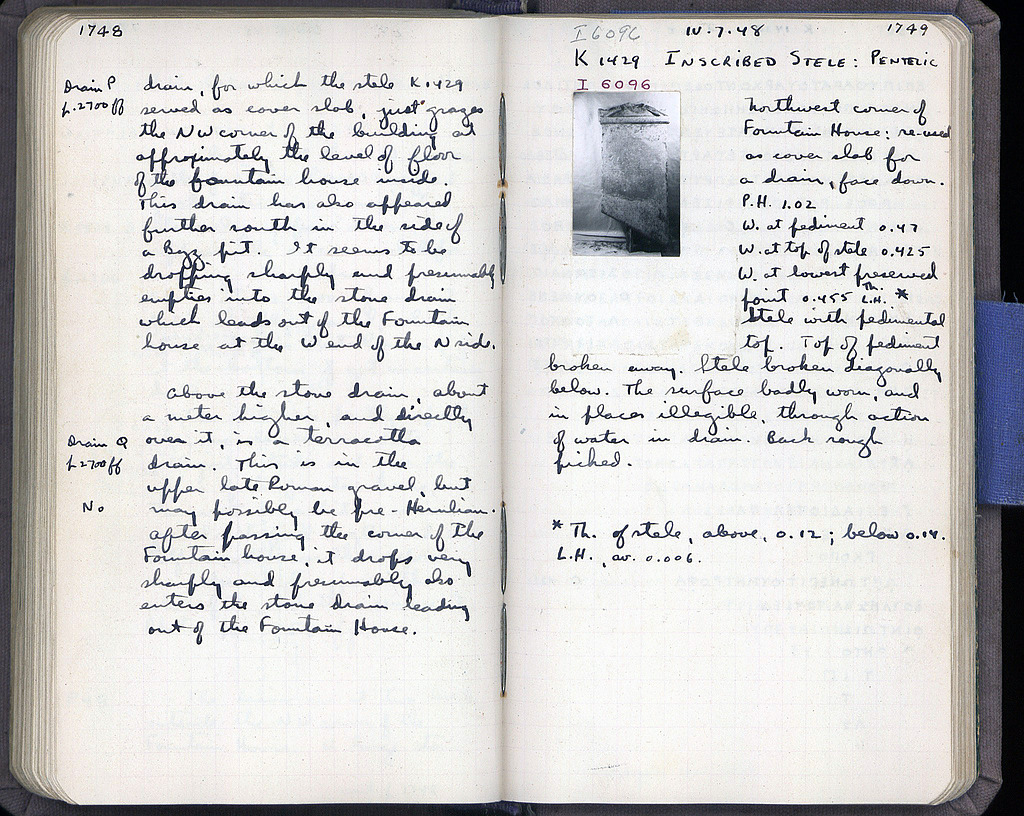 1748
Drain P
L.2700 ff
drain, for which the stele K 1429
served as cover slab, just grazes
the NW corner of the building at
approximately the level of floor
of the fountain house inside.
This drain has also appeared
further south in the side of
a Byz pit. It seems to be
dropping sharply and presumably
empties into the stone drain
which leads out of the Fountain
house at the W end of the N side.
above the stone drain, about
a meter higher, and directly
Drain Q
L.2700 ff
No
over it, is a terracotta
drain. This is in the
upper late Roman gravel, but
may possibly be pre-Herulian.
after passing the corner of the
Fountain house, it drops very
sharply and presumably also
enters the stone drain leading
out of the Fountain House.
I 6096 10.7.48 1749
K 1429 INSCRIBED STELE: PENTELIC
I 6096
Northwest corner of
Fountain House: re-used
as cover slab for
a drain, face down.
P.H. 1.02
W. at pediment 0.47
W. at top of stele 0.425
W. at lowest preserved
point 0.455 Th. L.H. *
Stele with pedimental
top. Top of pediment
broken away. Stele broken diagonally
below. The surface badly worn, and
in places illegible, through action
of water in drain. Back rough
picked.
* Th. of stele, above, 0.12; below 0.14.
L.H., av. 0.006.